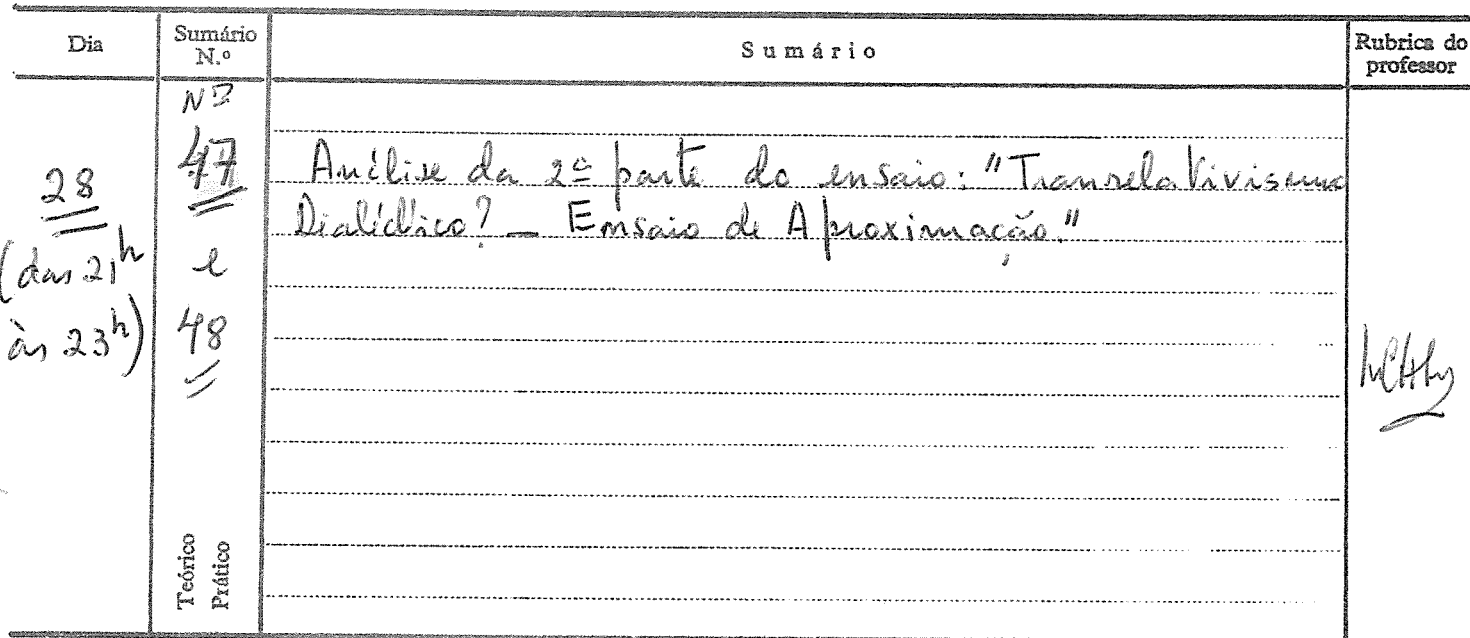 Dia
Sumário
N.º
Sumário
Rubrica do
professor
28
(das 21h
às 23h)
Nº
47
e
48
Análise da 2ª parte do ensaio: "Transrelativismo
Dialéctico? — Ensaio de Aproximação."
Teórico
Prático